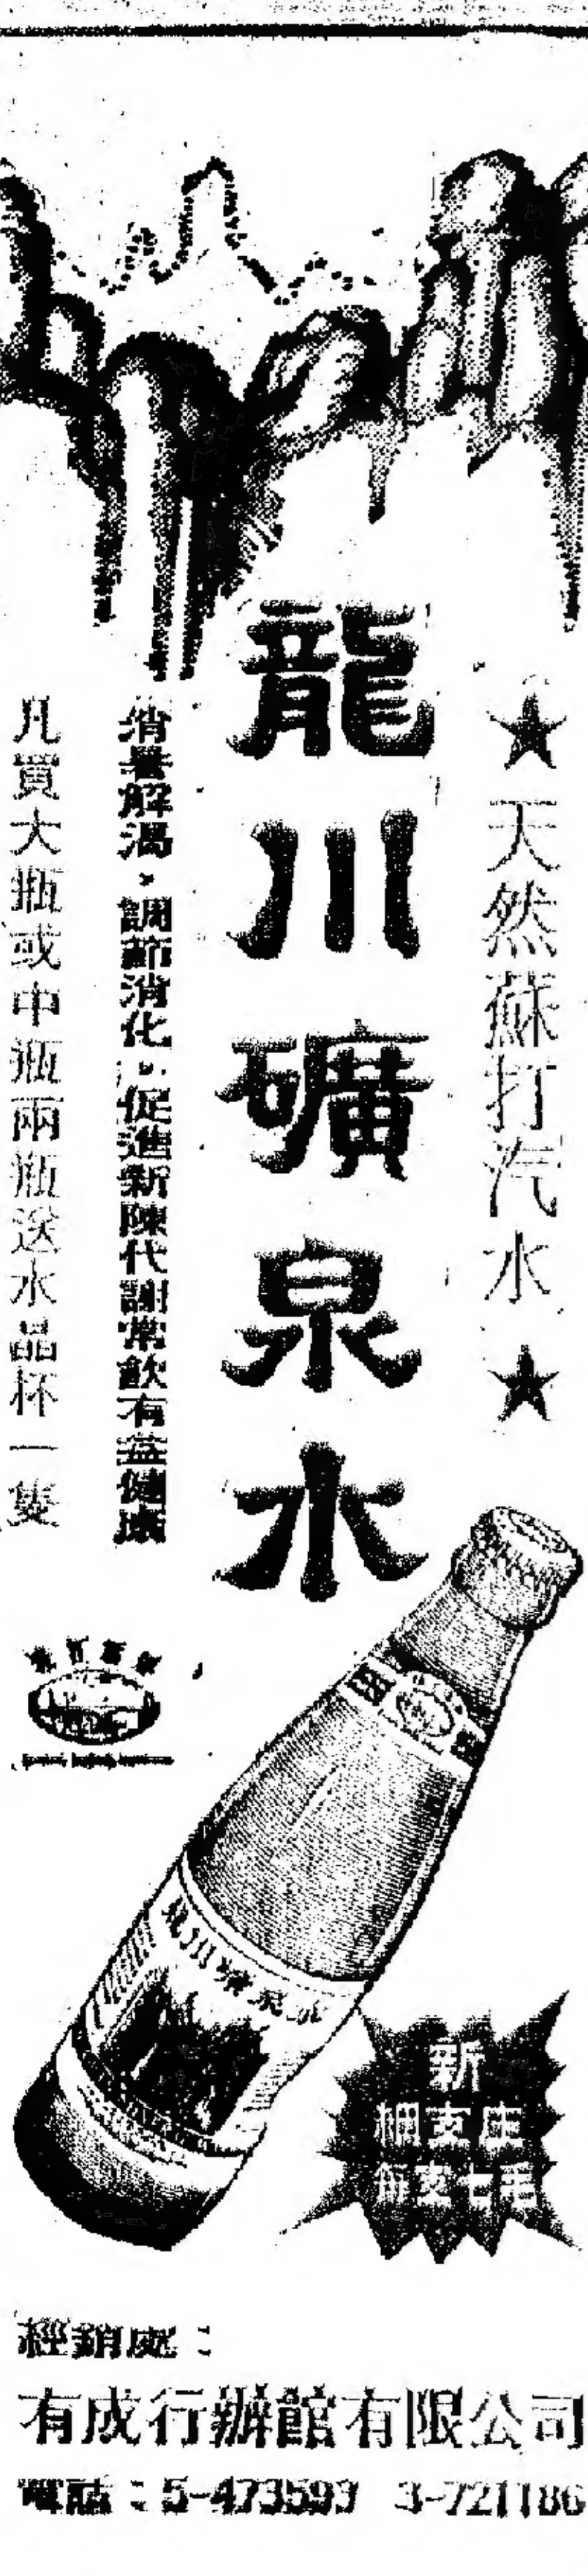 ★天然蘇打汽水★
龍川礦泉水
消暑解渴，調節消化，促進新陳代謝常飲有益健康
凡買大瓶或中瓶兩瓶送水晶杯一隻
龍川礦泉水
新
細支庄
每支七毛
經銷處：
有成行辦館有限公司
電話：5-473593 3-721186